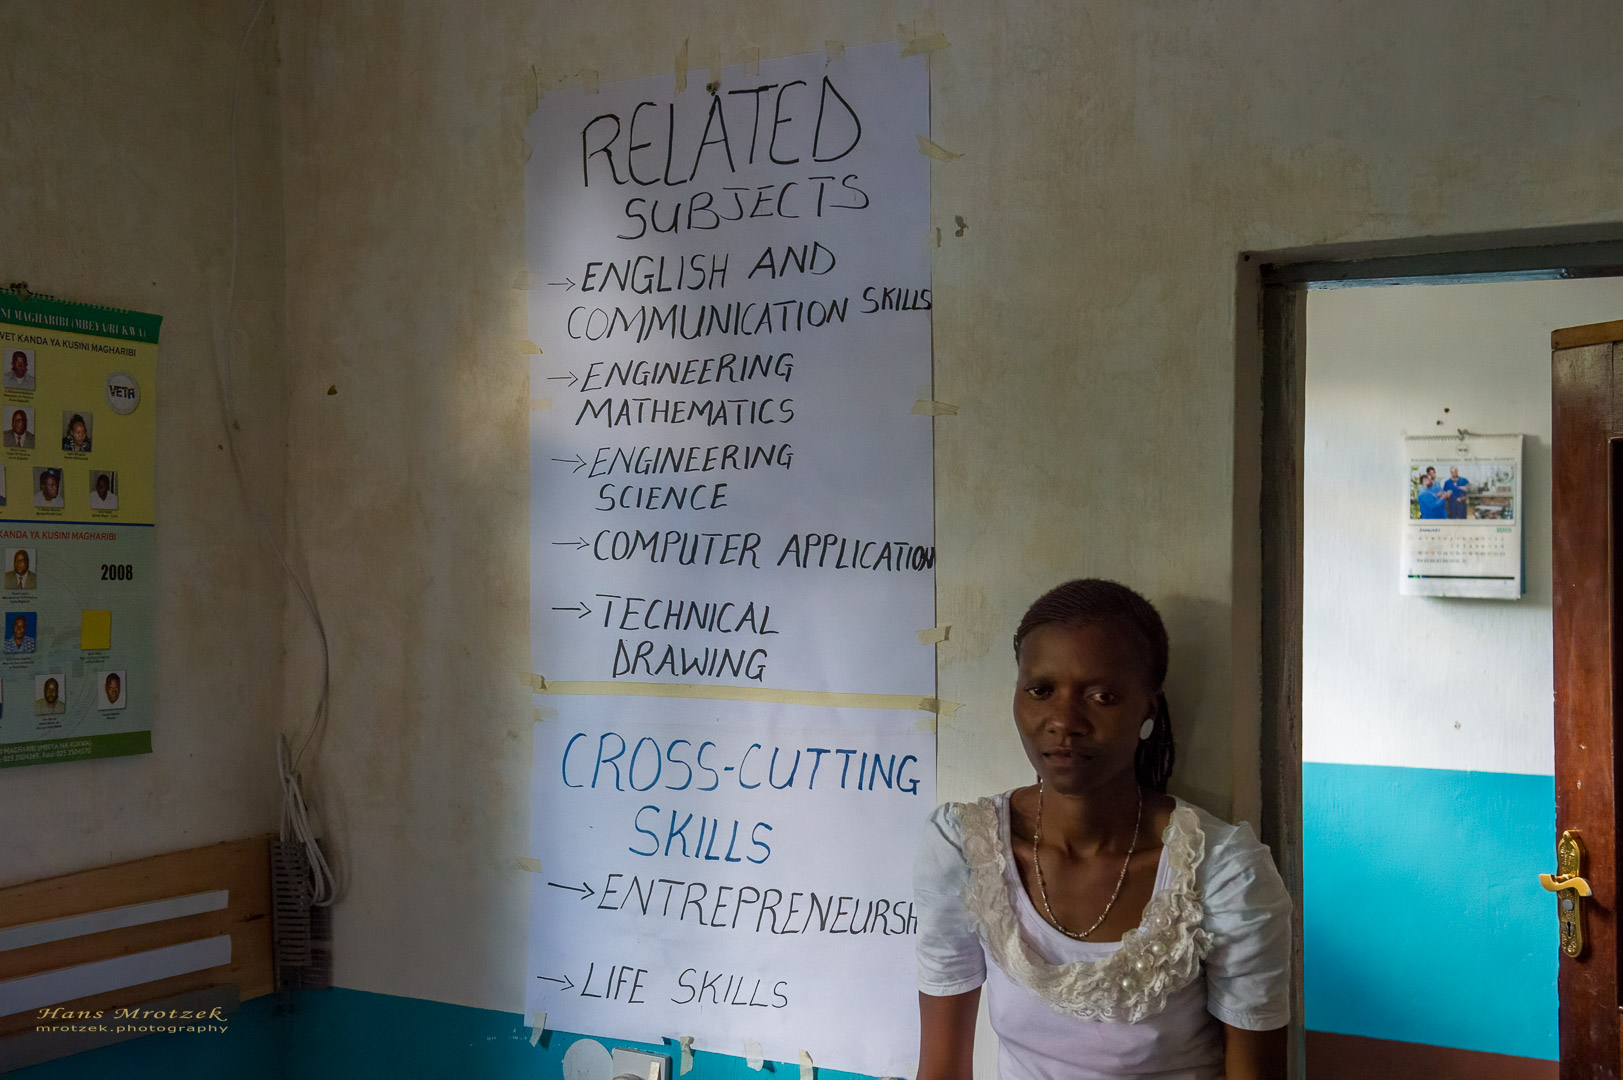 RELATED
SUBJECTS
→ENGLISH AND
COMMUNICATION SKILLS
→ENGINEERING
MATHEMATICS
→ENGINEERING
SCIENCE
→COMPUTER APPLICATION
→TECHNICAL
DRAWING
CROSS-CUTTING
SKILLS
→ENTREPRENEURSH
→LIFE SKILLS
MAGHARIBI (MBEYA/RUKWA)
KANDA YA KUSINI MAGHARIBI
VETA
KANDA YA KUSINI MAGHARIBI
2008
JANUARY
Hans Mrotzek
mrotzek.photography